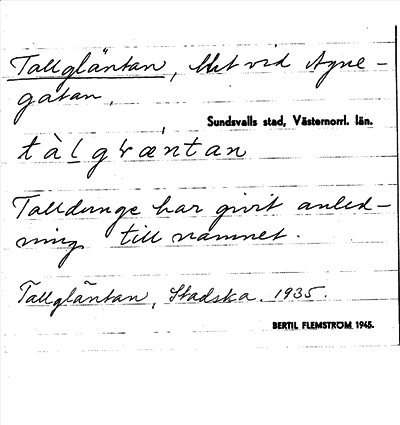 Tallgläntan, litet vid Agne-
gatan,
Sundsvalls stad, Västernorrl. län.
tàlglæ̀ntan
Talldunge har givit anled-
ning till namnet.
Tallgläntan, Stadska. 1935.
BERTIL FLEMSTRÖM 1945.